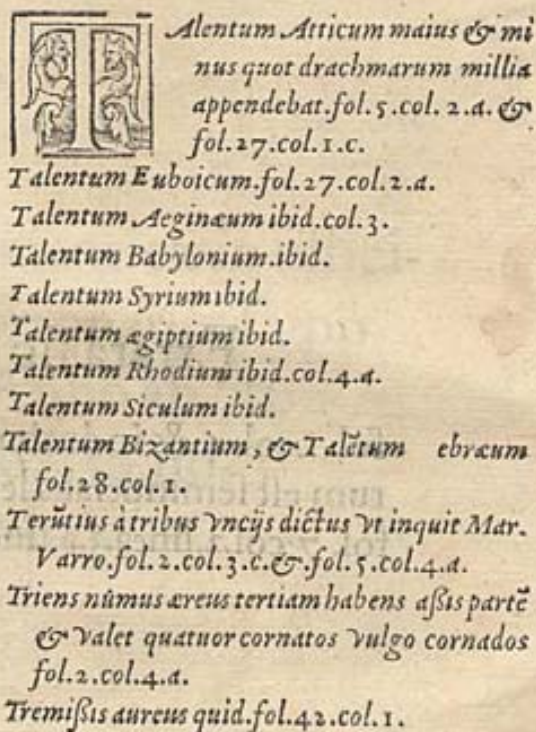 TAlentum Atticum maius & mi
nus quot drachmarum millia
appendebat.fol.5.col.2.a. &
fol.27.col.1.c.
Talentum Euboicum.fol.27.col.2.a.
Talentum Aeginæum ibid.col.3.
Talentum Babylonium.ibid.
Talentum Syrium ibid.
Talentum ægiptium ibid.
Talentum Rhodium ibid.col.4.a.
Talentum Siculum ibid.
Talentum Bizantium, & Talẽtum ebræum
fol.28.col.1.
Terũtius à tribus vncijs dictus vt inquit Mar.
Varro.fol.2.col.3.c.&.fol.5.col.4.a.
Triens nũmus æreus tertiam habens aßis partẽ
& valet quatuor cornatos vulgo cornados
fol.2.col.4.a.
Tremißis aureus quid.fol.42.col.1.